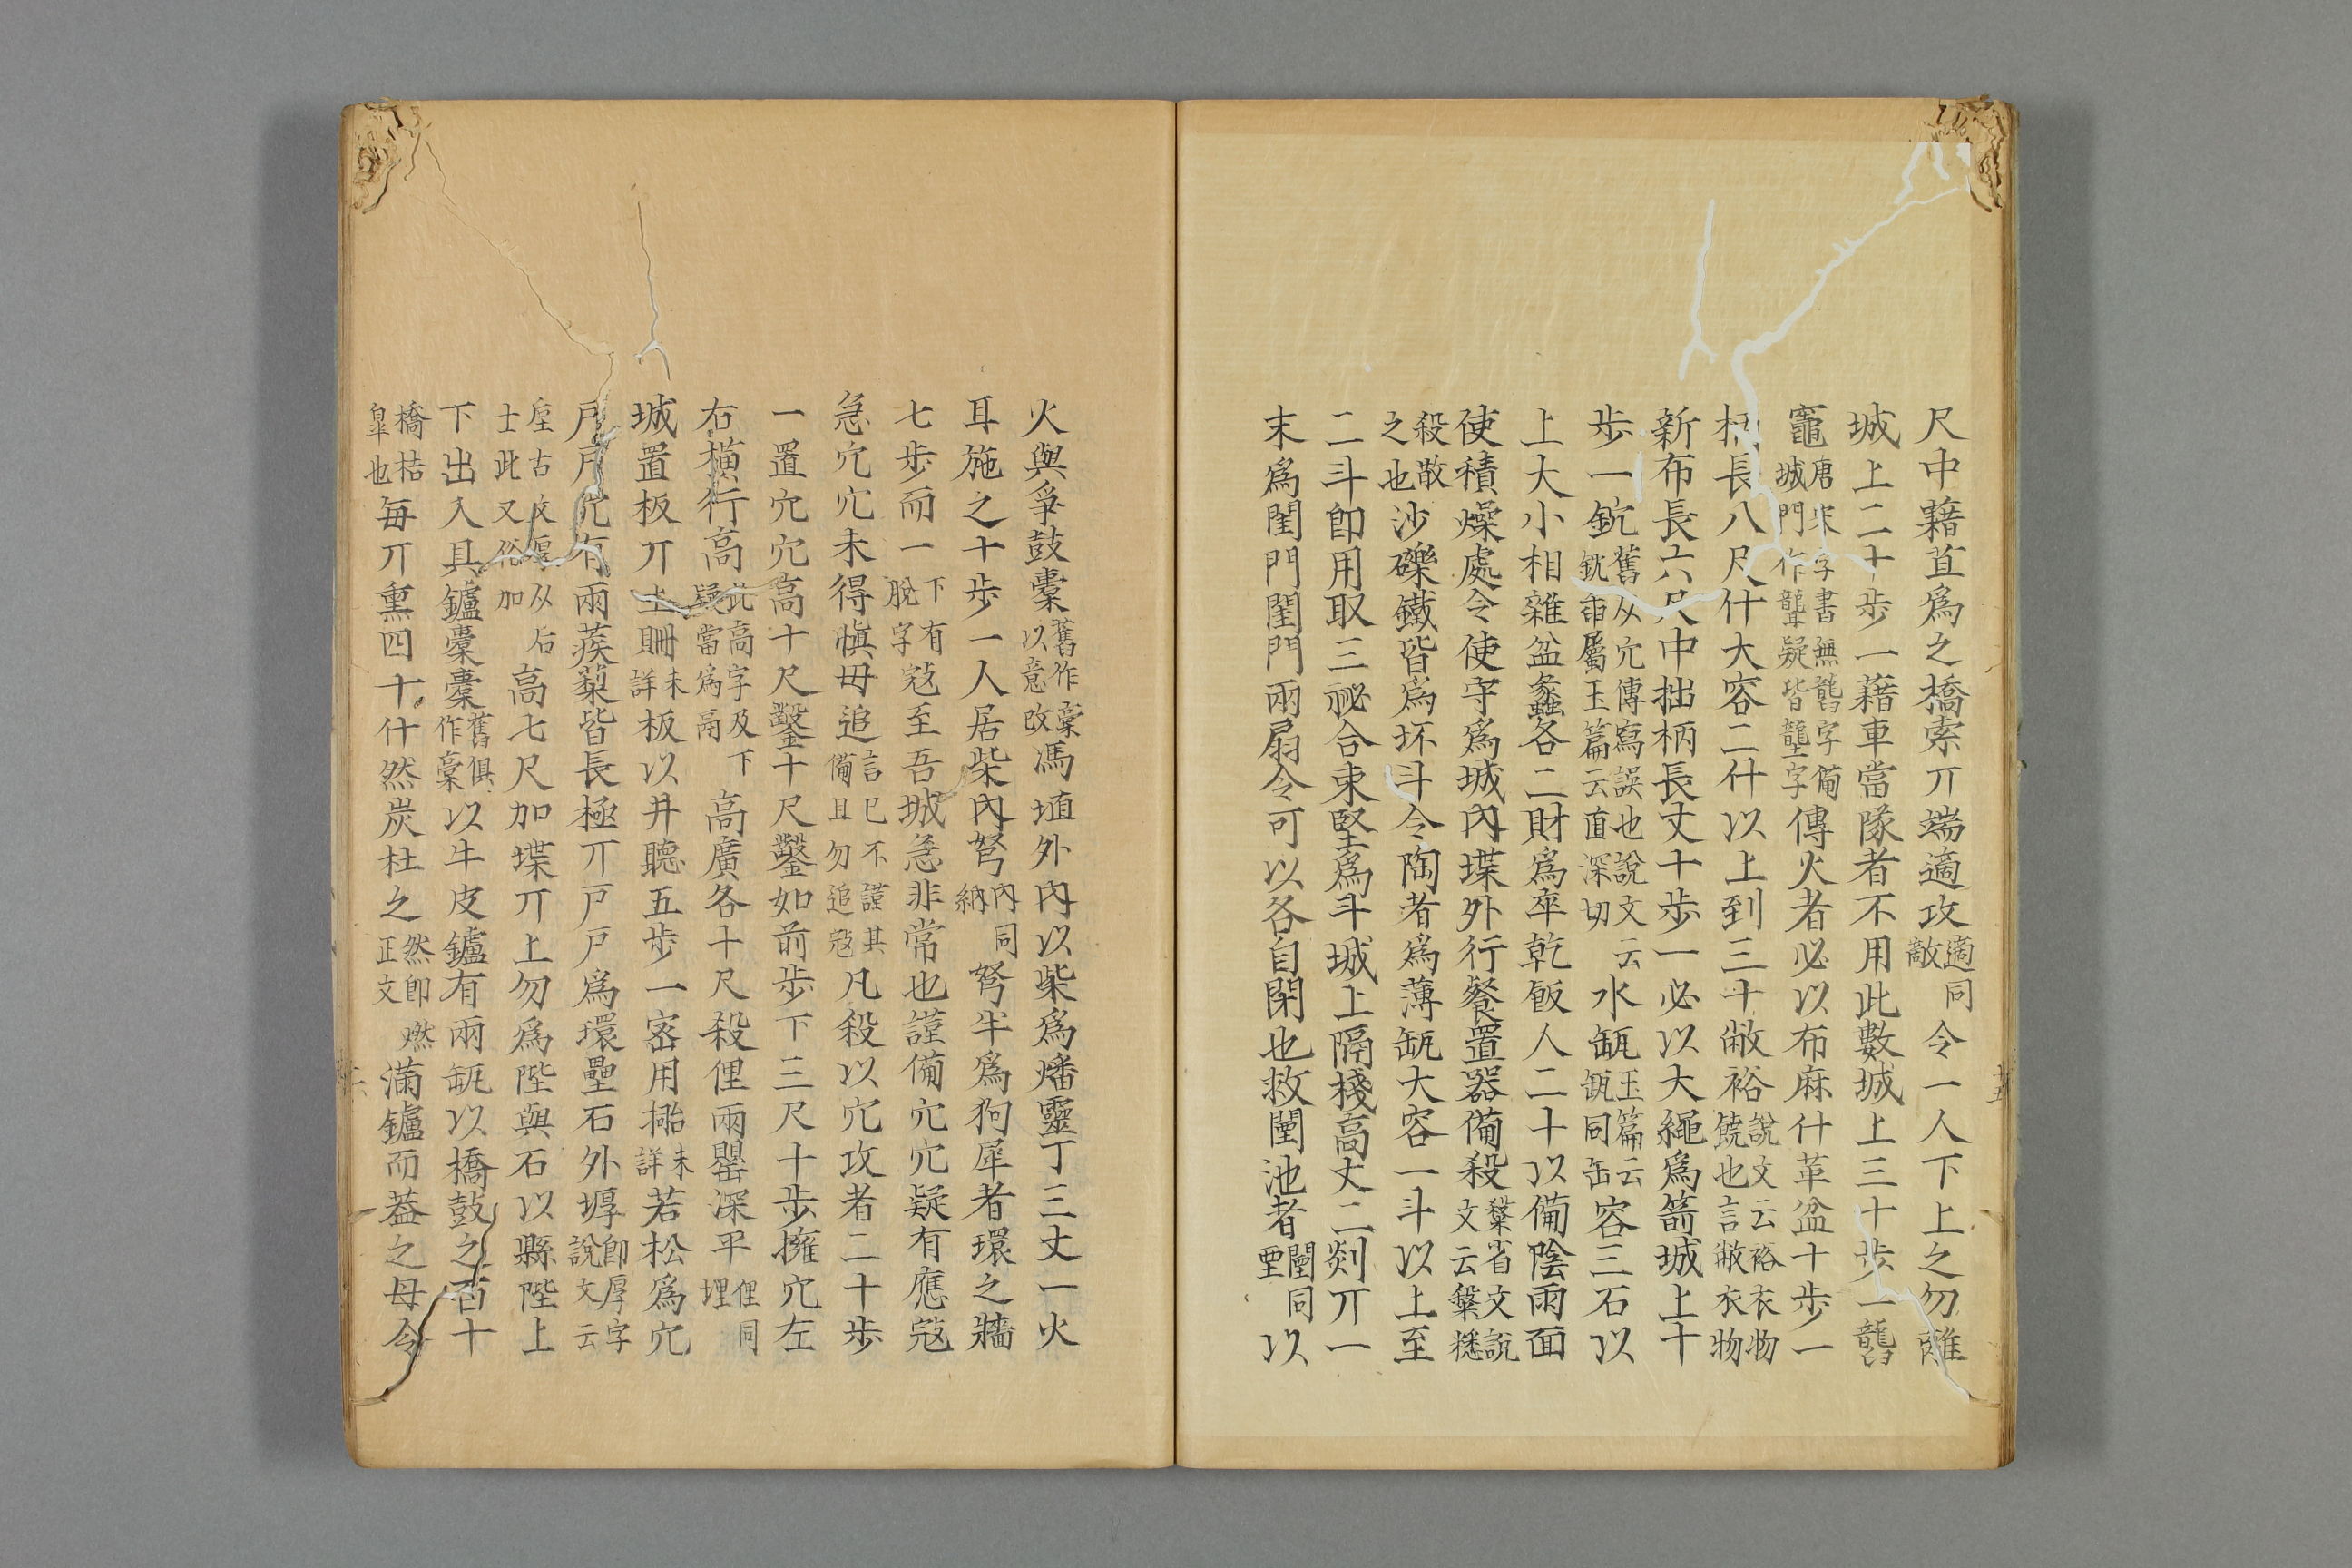 尺中藉苴爲之橋索丌端適攻適同敵令一人下上之勿離
城上二十歩一藉車當隊者不用此數城上三十歩一
竈唐宋字書無字備城門作疑皆壟字傳火者必以布麻什革盆十歩一
柄長八尺什大容二什以上到三十敝裕說文云裕衣物饒也言敝衣物
新布長六尺中拙柄長丈十歩一必以大繩爲箭城上十
歩一鈂舊从冘傳寫誤也說文云鈂臿屬玉篇云直深切水缻玉篇云缻同缶容三石以
上大小相雜盆蠡各二財爲卒乾飯人二十以備陰雨面
使積燥處令使守爲城內堞外行餐置器備殺糳省文說文云糳糕
殺散之也沙礫鐵皆爲坏斗令陶者爲薄缻大容一斗以上至
二斗卽用取三祕合束堅爲斗城上隔棧高丈二剡丌一
末爲閨門閨門兩扇令可以各自閉也救闉池者闉同堙以
火與爭鼓橐舊作橐以意改馮埴外內以柴爲燔靈丁三丈一火
耳施之十歩一人居柴內弩內同納弩半爲狗犀者環之牆
七歩而一下有脫字宼至吾城急非常也謹備穴穴疑有應宼
急穴穴未得愼毋追言已不謹其備且勿追宼凡殺以穴攻者二十歩
一置穴穴高十尺鑿十尺鑿如前歩下三尺十歩擁穴左
右橫行高此高字及下疑當爲鬲高廣各十尺殺俚兩罌深平俚同埋
城置板丌上䏼未詳板以井聽五歩一宻用㨒未詳若松爲穴
戸戸穴有兩蒺藜皆長極丌戸戸爲環壘石外㙻卽厚字說文云
垕古文厚从后土此又俗加高七尺加堞丌上勿爲陛與石以縣陛上
下出入具鑪橐橐舊俱作橐以牛皮鑪有兩缻以橋鼓之百十
橋桔臯也每丌熏四十什然炭杜之然卽燃正文滿鑪而葢之毋令